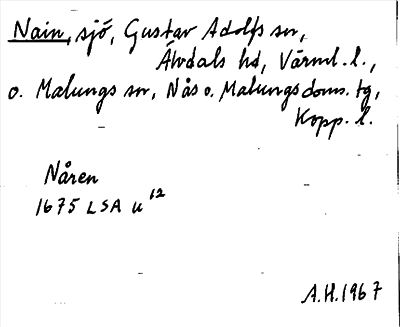 Nain, sjö, Gustav Adolfs sn,
Älvdals hd, Värml. l.,
o. Malungs sn, Nås o. Malungs doms. tg,
Kopp. l.
Nåren
1675 LSA u 12
A.H. 1967